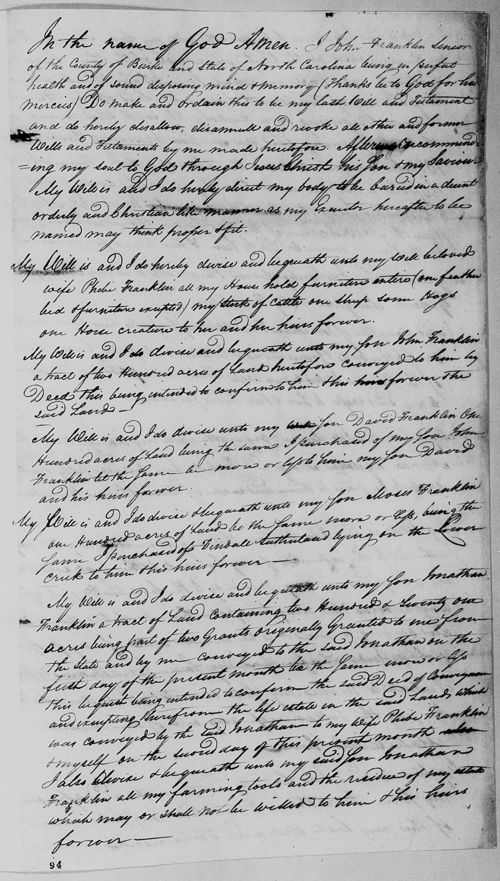 In the name of God Amen. I John Franklin Senior
of the County of Burke and State of North Carolina being in perfect
health and of sound disposing mind & memory (Thanks be to God for his
mercies) Do make and ordain this to be my last Will and Testament
and do hereby disallow, disannull and revoke all other and former
Wills and Testaments by me made heretofore. recommend
=ing my soul to God through Jesus Christ his Son & my Saviour
My Will is and I do hereby direct my body to be buried in a decent
orderly and Christian like manner as my Executor hereafter to be
named may think proper & fit.
My Will is and I do hereby devise and bequeath unto my well beloved
wife Phebe Franklin all my House hold furniture entire (one feather
bed & furniture excepted) my stock of cattle one sheep some Hogs
one Horse creature to her and her heirs forever.
My Will is and I do devise and bequeath unto my son John Franklin
a tract of two Hundred acres of Land heretofore conveyed to him by
Deed this being intended to confirm to him & his heirs forever the
said Land —
My Will is and I do devise unto my son David Franklin One
Hundred acres of Land being the same I purchased of my son John
Franklin let the same be more or less to him my son David
and his heirs forever.
My Will is and I do devise & bequeath unto my son Moses Franklin
one Hundred acres of Land be the same more or less, being the
same I purchased of Sutherland lying on the Lower
creek to him & his heirs forever —
My Will is and I do devise and bequeath unto my son Jonathan
Franklin a tract of Land containing two Hundred & Seventy one
acres being part of two Grants originally Granted to me from
the State and by me conveyed to the said Jonathan on the
first day of the present month be the same more or less
this bequest being intended to confirm the said Deed of Conveyance
and excepting therefrom the life estate in the said Lands which
was conveyed by the said Jonathan to my wife Phebe Franklin
& myself on the second day of this present month
I also devise & bequeath unto my said son Jonathan
Franklin all my farming tools and the residue of my estate
which may or shall not be willed to him & his heirs
forever —
94